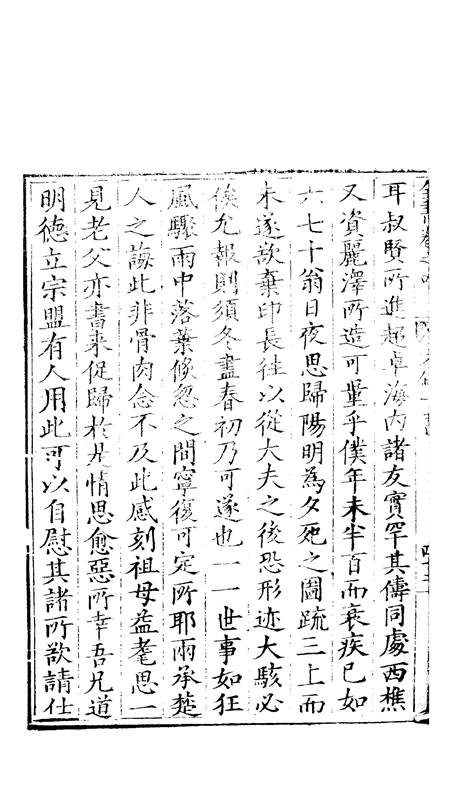 耳叔賢所進超卓海內諸友實罕其儔同處西樵
又資麗澤所造可量乎僕年未半百而衰疾已如
六七十翁日夜思歸陽明為夕死之圖疏三上而
未遂欲棄印長往以從大夫之後恐形迹大駭必
俟允報則須冬盡春初乃可遂也一一世事如狂
風驟雨中落葉倏忽之間寧復可定所耶兩承楚
人之誨此非骨肉念不及此感刻祖母益耄思一
見老父亦書來促歸於是情思愈惡所幸吾兄道
明德立宗盟有人用此可以自慰其諸所欲請仕